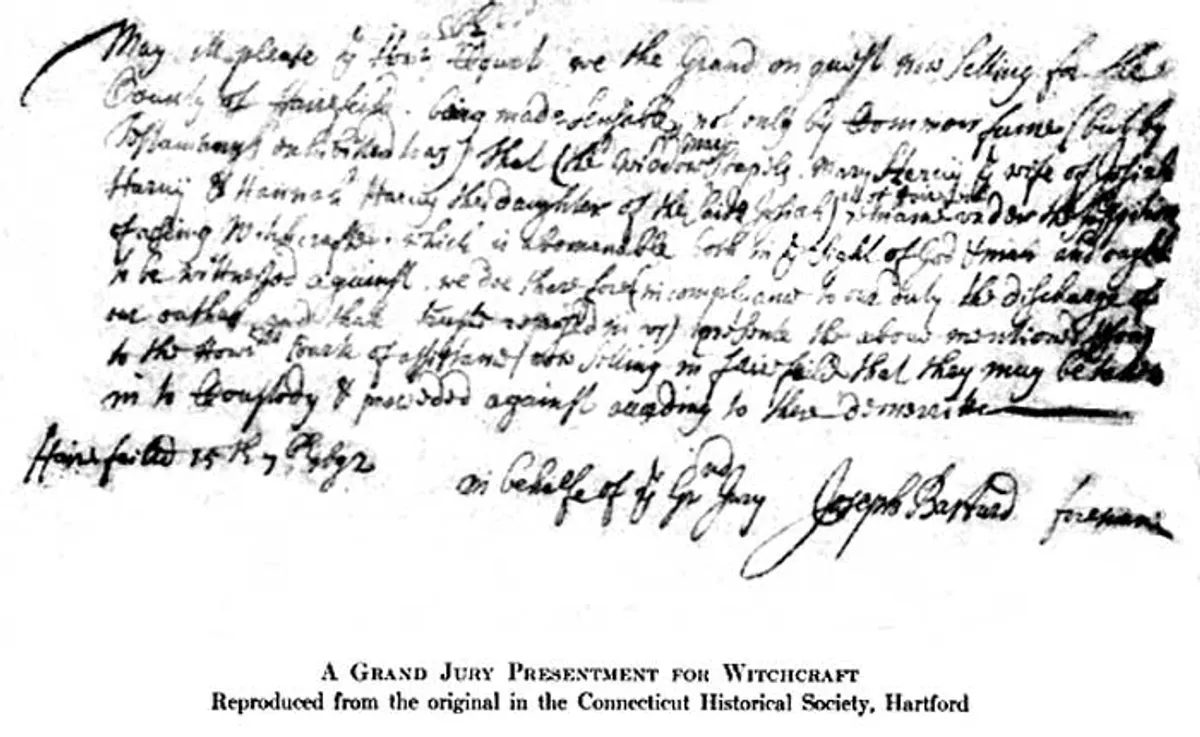 May itt please yᵉ Honʳᵈ Court we the Grand Inquest now Sitting for the
County of Fairefeild being made sensable not only by Common fame (but by
Testamonys duly billed to us) that (the widow Mary Staples, Mary Harvy yᵉ wife of Josiah
Harvy & Hannah Harvy the daughter of the said Josiah) remaine under the suspition
of useing Witchcrafte which is abomanable both in yᵉ sight of God & man and ought
to be wittnessed against. we doe therefore (in complyance to our duty the discharge of
our oathes and that trust reposed in us) presente the above mentioned
to the Honʳᵈ Court of assistants now Sitting in fairefeild that they may be taken
in to Coustody & proceeded against according to there demerrits
Fairefeild 15th 7 1692
in behalfe of yᵉ Grnd Jury
Joseph Bastard foreman
A Grand Jury Presentment for Witchcraft
Reproduced from the original in the Connecticut Historical Society, Hartford